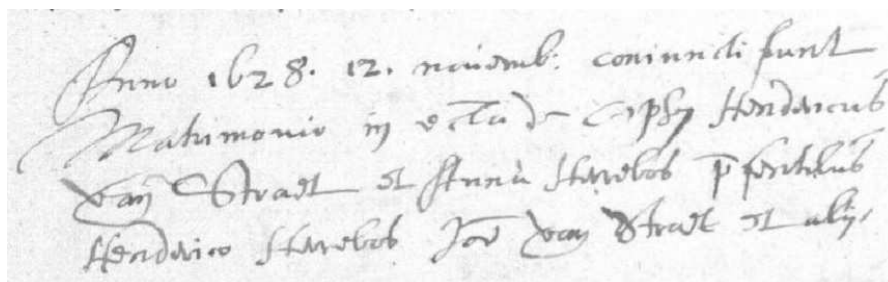 Anno 1628. 12. novemb: coniuncti sunt
Matrimonio in eccla de Hendricus
van Straet et Anna Harebos pſentibus
Hendrico Harebos Joē van Straet et alijs